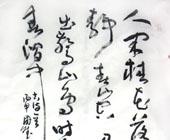 人闲桂花落
静春山空月
出惊山鸟时
春涧中